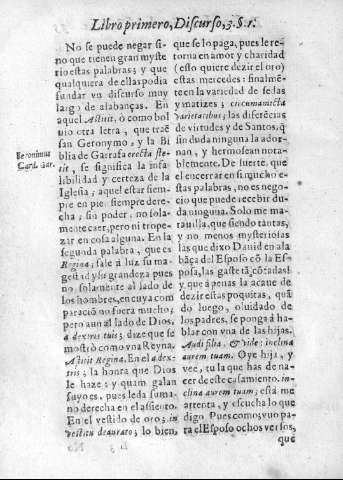 Libro primero, Discurso, 3. §. 1.
No se puede negar si-
no que tienen gran myste
rio estas palabras; y que
qualquiera de ellas podia
fundar vn discurso muy
largo de alabanças. En
aquel Astitit, ò como bol
uio otra letra, que traẽ
san Geronymo, y la Bi
blia de Garrafa erecta ste-
tit, se significa la infa
libilidad y certeza de la
Iglesia; aquel estar siem-
pre en pie siempre dere-
cha, sin poder, no sola-
mente caer, pero ni trope-
zar en cosa alguna. En la
segunda palabra, que es
Regina, sale à luz su ma-
gestad y su grandeza pues
no solamente al lado de
los hombres, en cuya com
paracion no fuera mucho;
pero aun al lado de Dios,
à dextris tuis; dize que se
mostrò como vna Reyna.
Astitit Regina. En el à dex-
tris, la honra que Dios
le haze: y quam galan
suyo es, pues le da suma-
no derecha en el assiento.
En el vestido de oro; in
vestitu deaurato; lo bien,
Geronimus
Card.
que se lo paga, pues le re-
torna en amor y charidad
(esto quiere dezir el oro)
estas mercedes: finalmẽ-
te en la variedad de sedas
y matizes; circumamicta
varietatibus; las diferẽcias
de virtudes y de Santos, q̃
sin duda ninguna la ador-
nan, y hermosean nota-
blemente. De suerte, que
el encerrar en si mucho es-
tas palabras, no es nego-
cio que puede recebir du-
da ninguna. Solo me ma-
rauilla, que siendo tantas,
y no menos mysteriosas
las que dixo Dauid en ala
bãça del Esposo cõ la Es-
posa, las gaste tã cõtadas!
y que à penas la acaue de
dezir estas poquitas, quã
do luego, oluidado de
los padres, se ponga à ha-
blar con vna de las hijas.
Audi filia, & vide: inclina
aurem tuam. Oye hija, y
vee, tu la que has de na-
cer deste casamiento. in-
clina aurem tuam; està me
atenta, y escucha lo que
digo. Pues como; vuo pa-
ra el Esposo ocho versos,
que